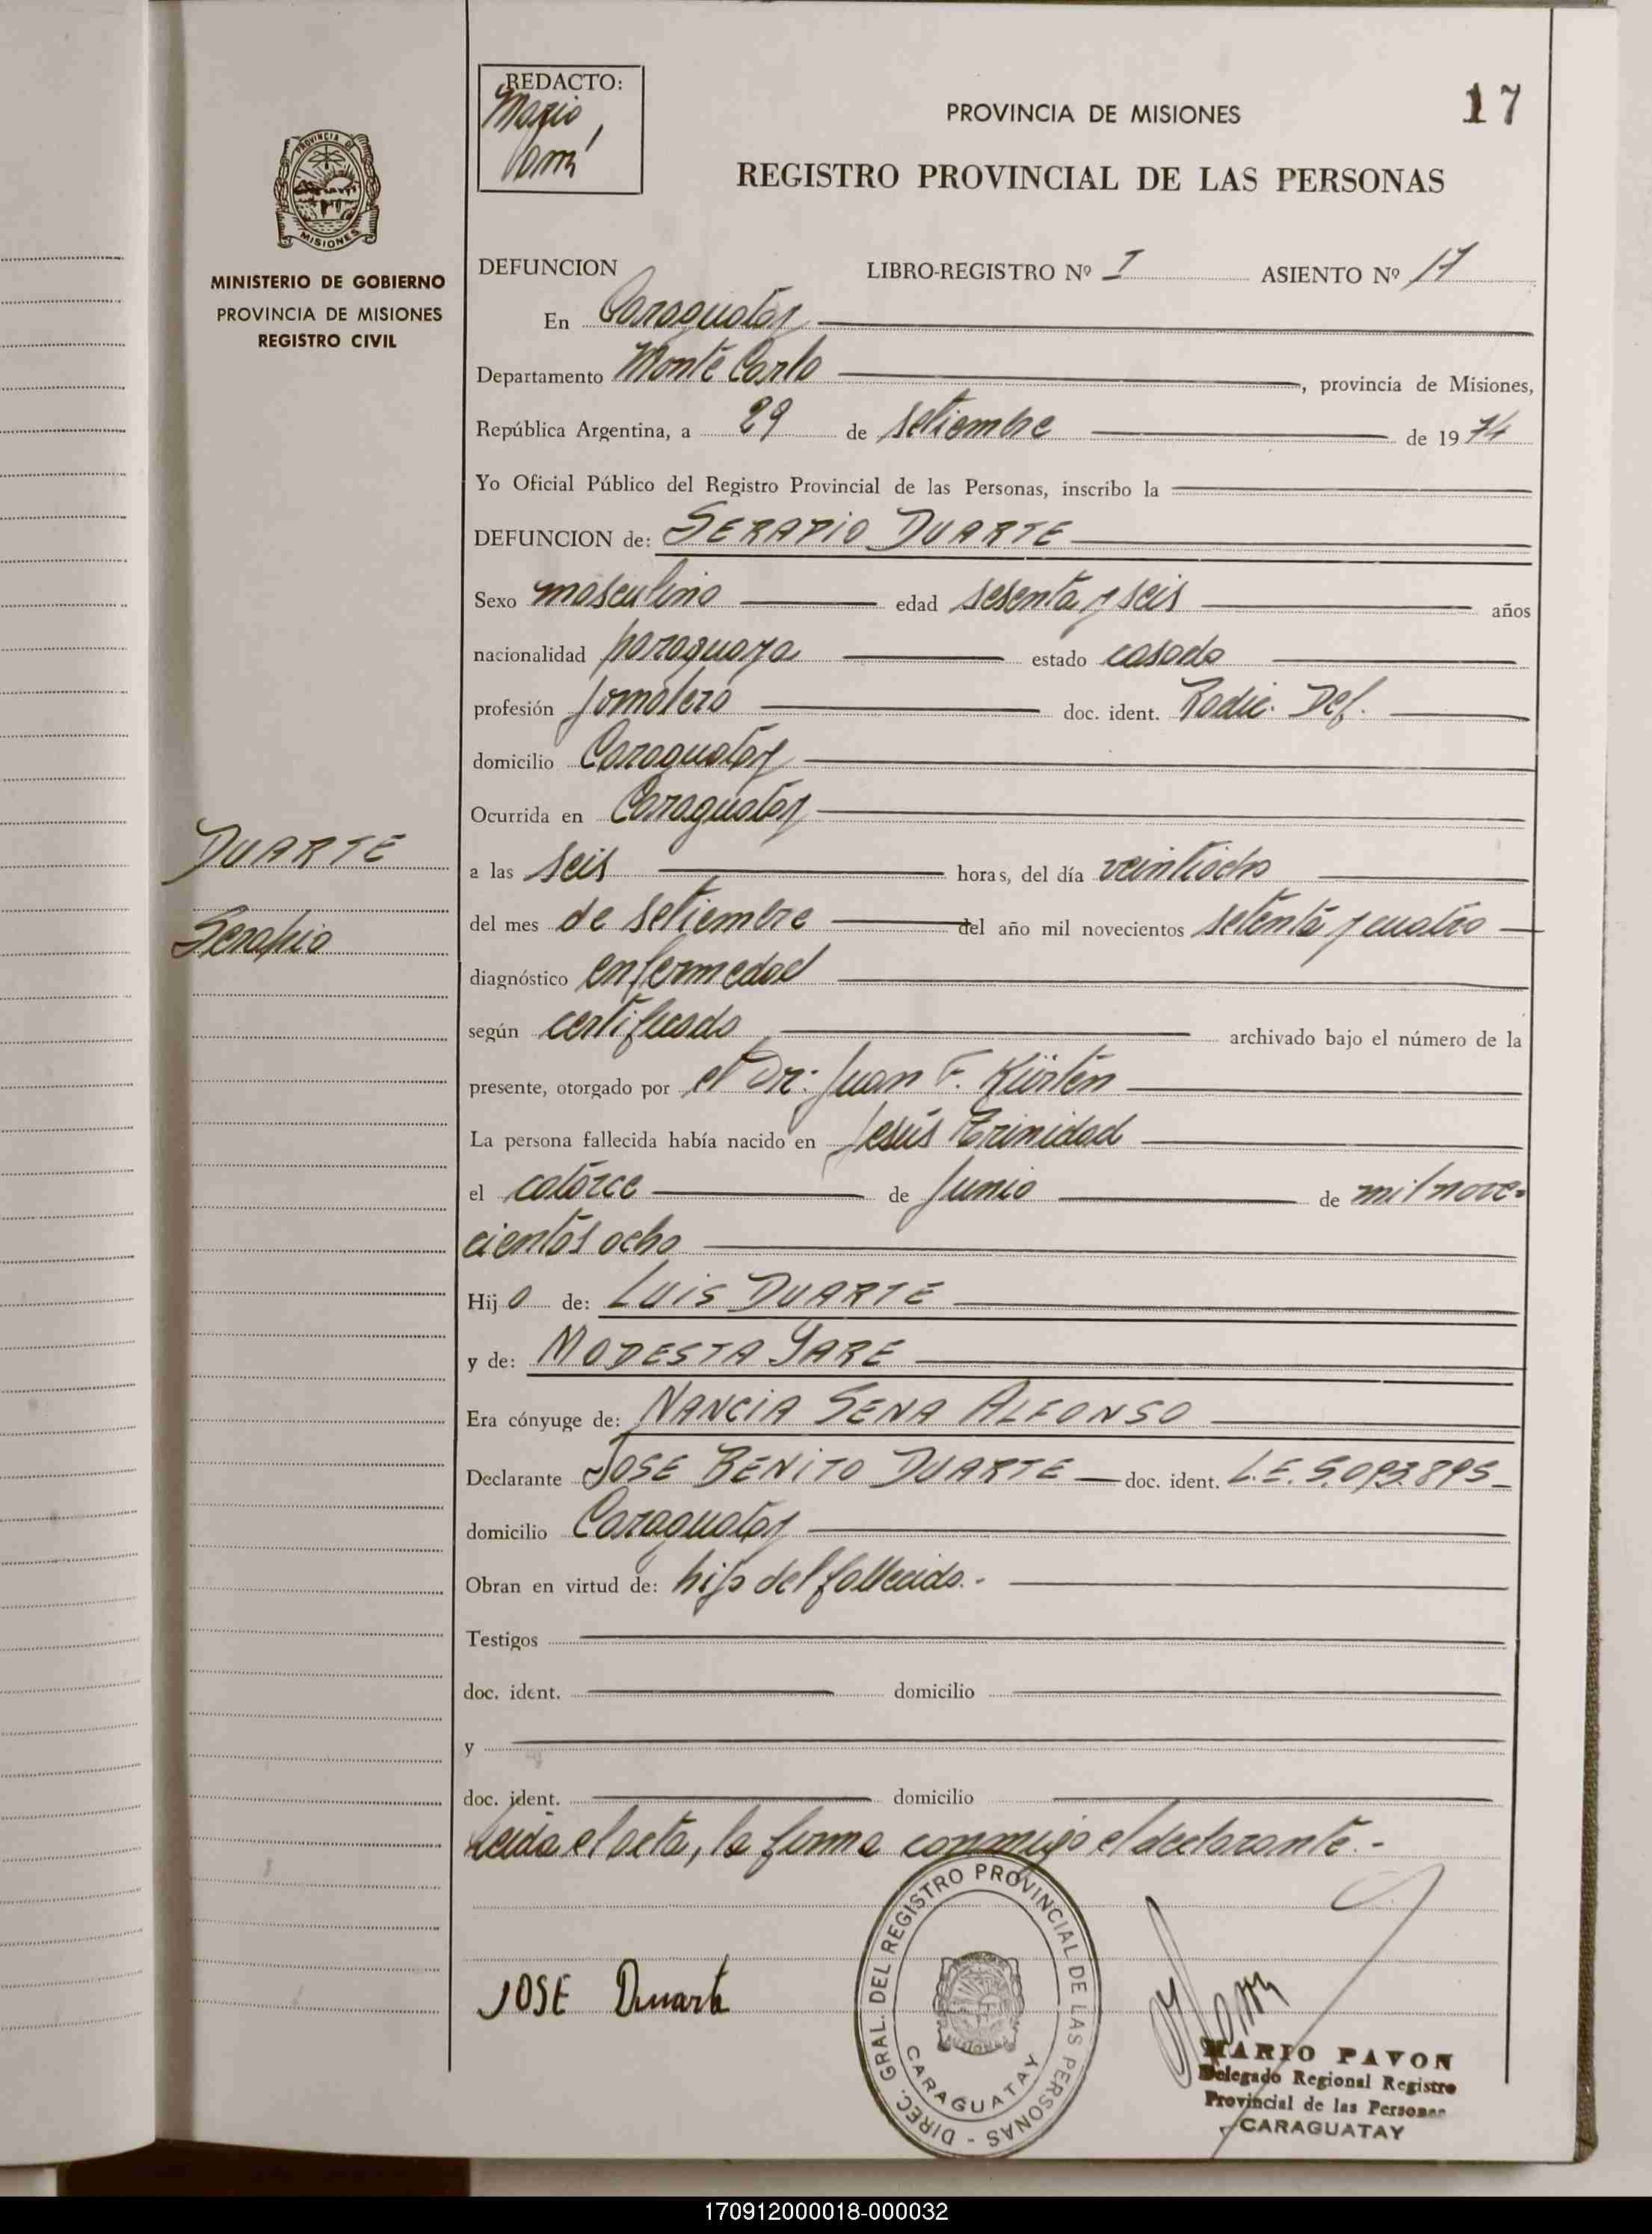 REDACTO:
Mario
PROVINCIA DE MISIONES
17
REGISTRO PROVINCIAL DE LAS PERSONAS
PROVINCIA DE
MISIONES
MINISTERIO DE GOBIERNO
PROVINCIA DE MISIONES
REGISTRO CIVIL
DEFUNCION LIBRO-REGISTRO Nº I ASIENTO Nº 17
En Caraguatay
Departamento Monte Carlo, provincia de Misiones,
República Argentina, a 29 de setiembre de 1974
Yo Oficial Público del Registro Provincial de las Personas, inscribo la
DEFUNCION de: SERAPIO DUARTE
Sexo masculino edad sesenta y seis años
nacionalidad paraguaya estado casado
profesión Jornalero doc. ident. Radic. Def.
domicilio Caraguatay
Ocurrida en Caraguatay
DUARTE
Serapio
a las seis horas, del día veintiocho
del mes de setiembre del año mil novecientos setenta y cuatro
diagnóstico enfermedad
según certificado archivado bajo el número de la
presente, otorgado por el Dr: Juan F. Kürten
La persona fallecida había nacido en Jesús Trinidad
el catorce de Junio de mil nove-
cientos ocho
Hijo de: LUIS DUARTE
y de: MODESTA YARE
Era cónyuge de: NANCIA SENA ALFONSO
Declarante JOSE BENITO DUARTE doc. ident. L.E. 5.093.895
domicilio Caraguatay
Obran en virtud de: hijo del fallecido.-
Testigos
doc. ident. domicilio
y
doc. ident. domicilio
Leida el acta, la firma conmigo el declarante.-
JOSE Duarte
DIREC. GRAL. DEL REGISTRO PROVINCIAL DE LAS PERSONAS -
CARAGUATAY
MARIO PAVON
Delegado Regional Registro
Provincial de las Personas
CARAGUATAY
170912000018-000032